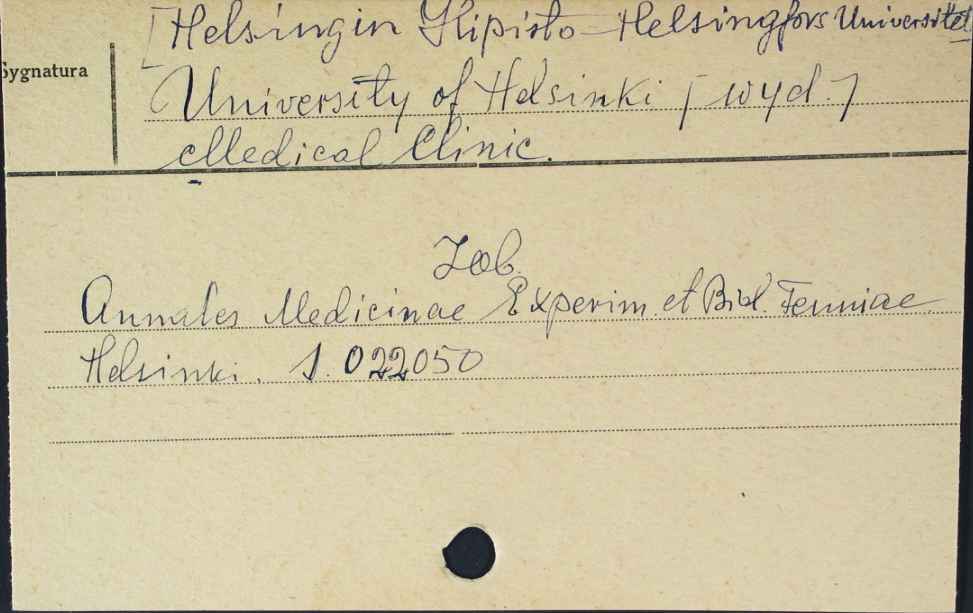 [Helsingin Ylipisto - Helsingfors Universitet
Sygnatura
University of Helsinki [wyd.]
Medical Clinic.
Zob.
Annales Medicinae Experim. et Biol. Fenniae.
Helsinki. S. 022050